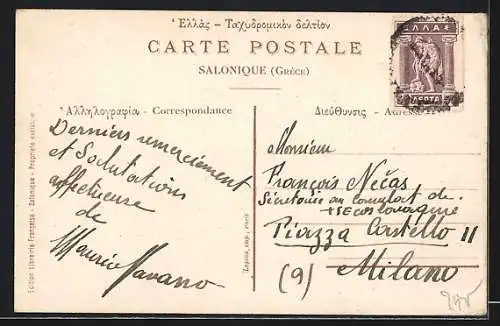 Ἑλλάς - Ταχυδρομικὸν δελτίον
CARTE POSTALE
SALONIQUE (GRÈCE)
ΕΛΛΑΣ
ΛΕΠΤΑ
Ἀλληλογραφία - Correspondance
Διεύθυνσις - Adresse
Derniers remerciement
et Salutations
affectueuse
de
Maurice Navano
Monsieur
François Nečas
Secrétaire au consulat de
Piazza Castello 11
(9) Milano
Editeur Librairie Française - Salonique - Propriété exclusive
imp., Paris